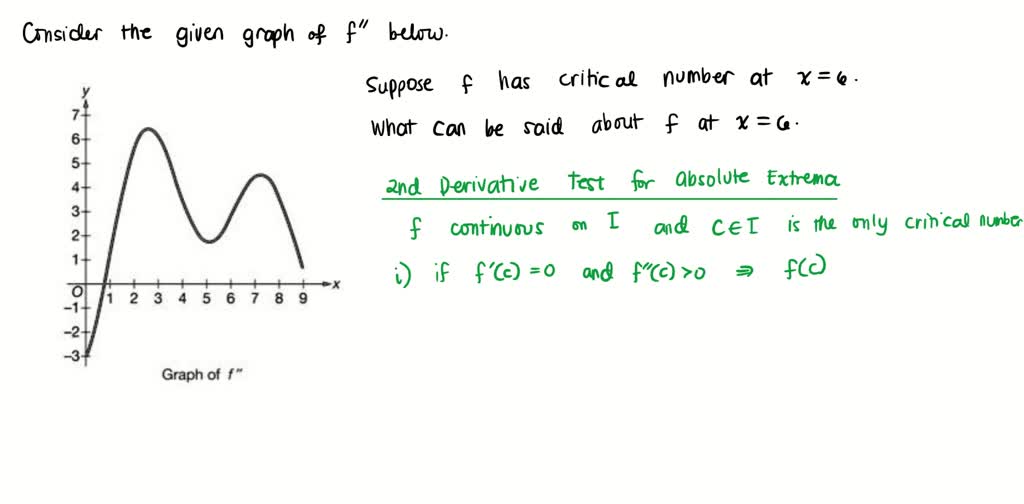 Consider the given graph of f" below.
Suppose f has critical number at x=6.
What can be said about f at x=6.
2nd Derivative Test for Absolute Extrema
f continuous on I and C∈I is the only critical number
i) if f'(c)=0 and f"(c)>0 ⇒ f(c)
y
7
6
5
4
3
2
1
O 1 2 3 4 5 6 7 8 9 x
-1
-2
-3
Graph of f"